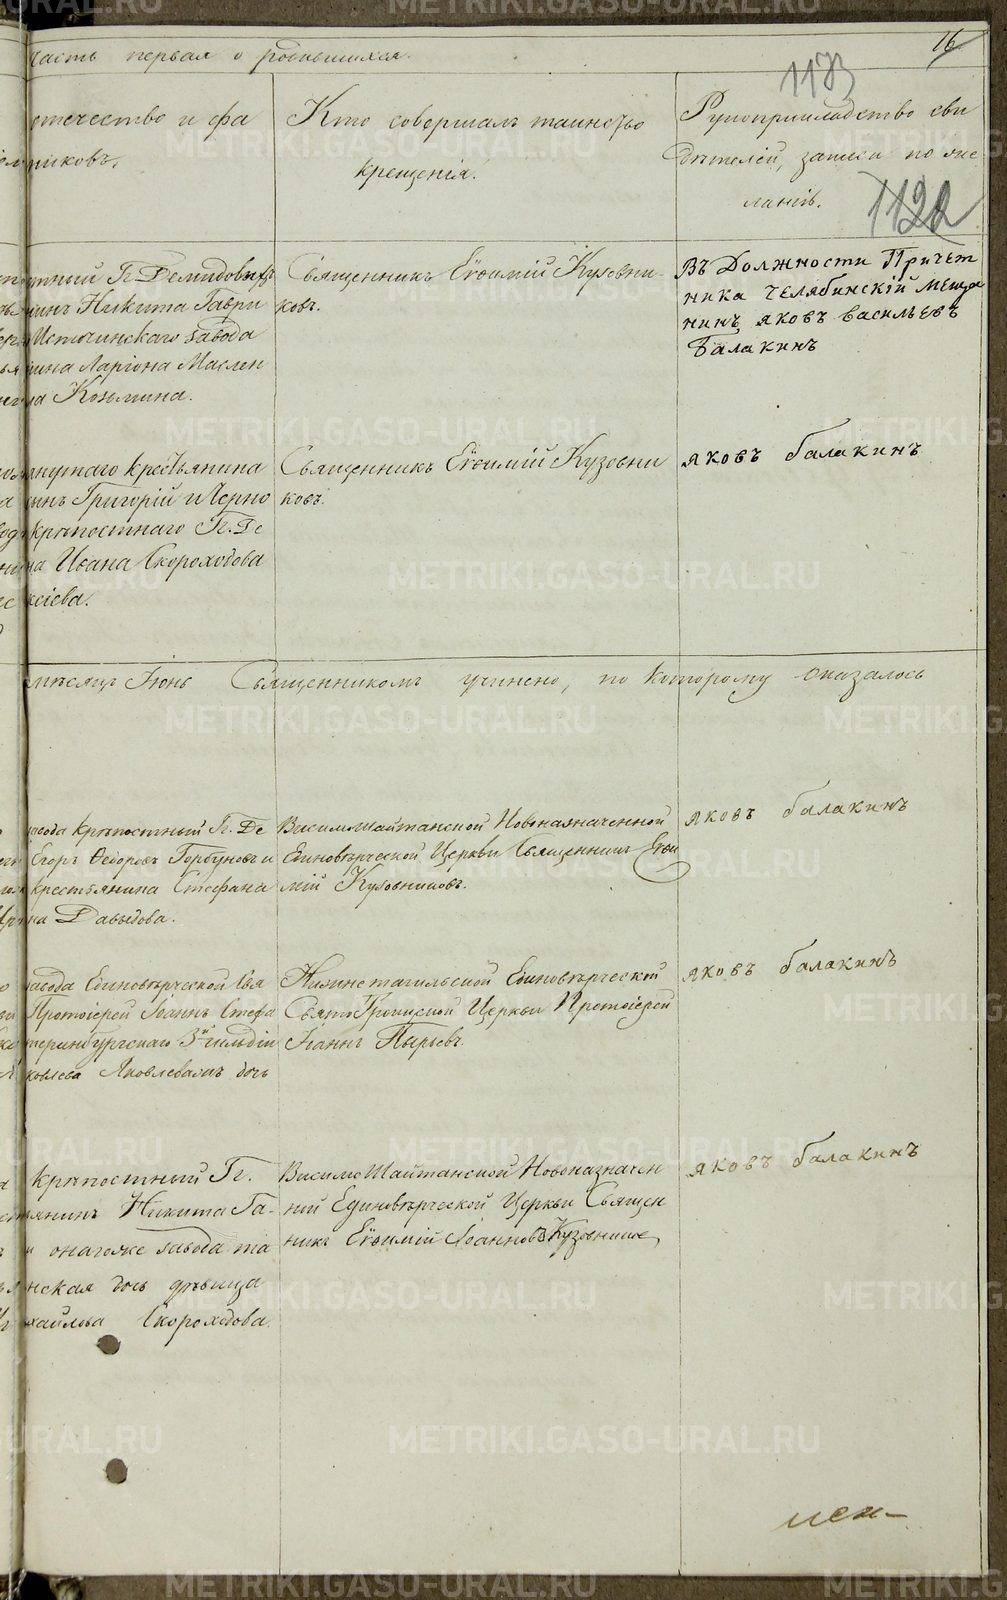 Часть первая о родившихся.
16
1173
1122
отечество и фа
ников.
Кто совершалъ таинство
крещенія.
Рукоприкладство сви
дѣтелей, записи по же
ланію.
Гг. Демидовыхъ
Никита Гаври
Истокинскаго завода
нина Ларіона Маслен
Козьмина.
Священникъ Евѳимій Кузовни-
ковъ.
Въ Должности Причет
ника челябинскій Меща
нинъ яковъ васильевъ
балакинъ
крестьянина
сынъ Григорій и Черно
крѣпостнаго Гг. Де
на Ивана Скороходова
ксіева.
Священникъ Евѳимій Кузовни
ковъ.
яковъ балакинъ
мѣсяцъ Іюнь Священникомъ учинено, по которому оказалось
завода крѣпостный Гг. Де
Егоръ Ѳедоровъ Горбуновъ и
крестьянина Стефана
на Давыдова.
Висимошайтанской Новоназначенной
Единовѣрческой Церкви Священникъ Евѳи
мій Кузовниковъ.
яковъ балакинъ
завода Единовѣрческой Свя
Протоіерей Іоаннъ Стефа
теринбургскаго 3й гильдіи
ковлева Яковлевамъ дочь
Нижнетагильской Единовѣрческой
Свято Троицкой Церкви Протоіерей
Іоаннъ Пырьевъ.
яковъ балакинъ
Крѣпостный Гг.
янинъ Никита Га-
и онагоже завода та
нская дочь дѣвица
хайлова Скороходова.
Висимо Шайтанской Новоназначен
ной Единовѣрческой Церкви Священ
никъ Евѳимій Іоанновъ Кузовник
яковъ балакинъ
METRIKI.GASO-URAL.RU